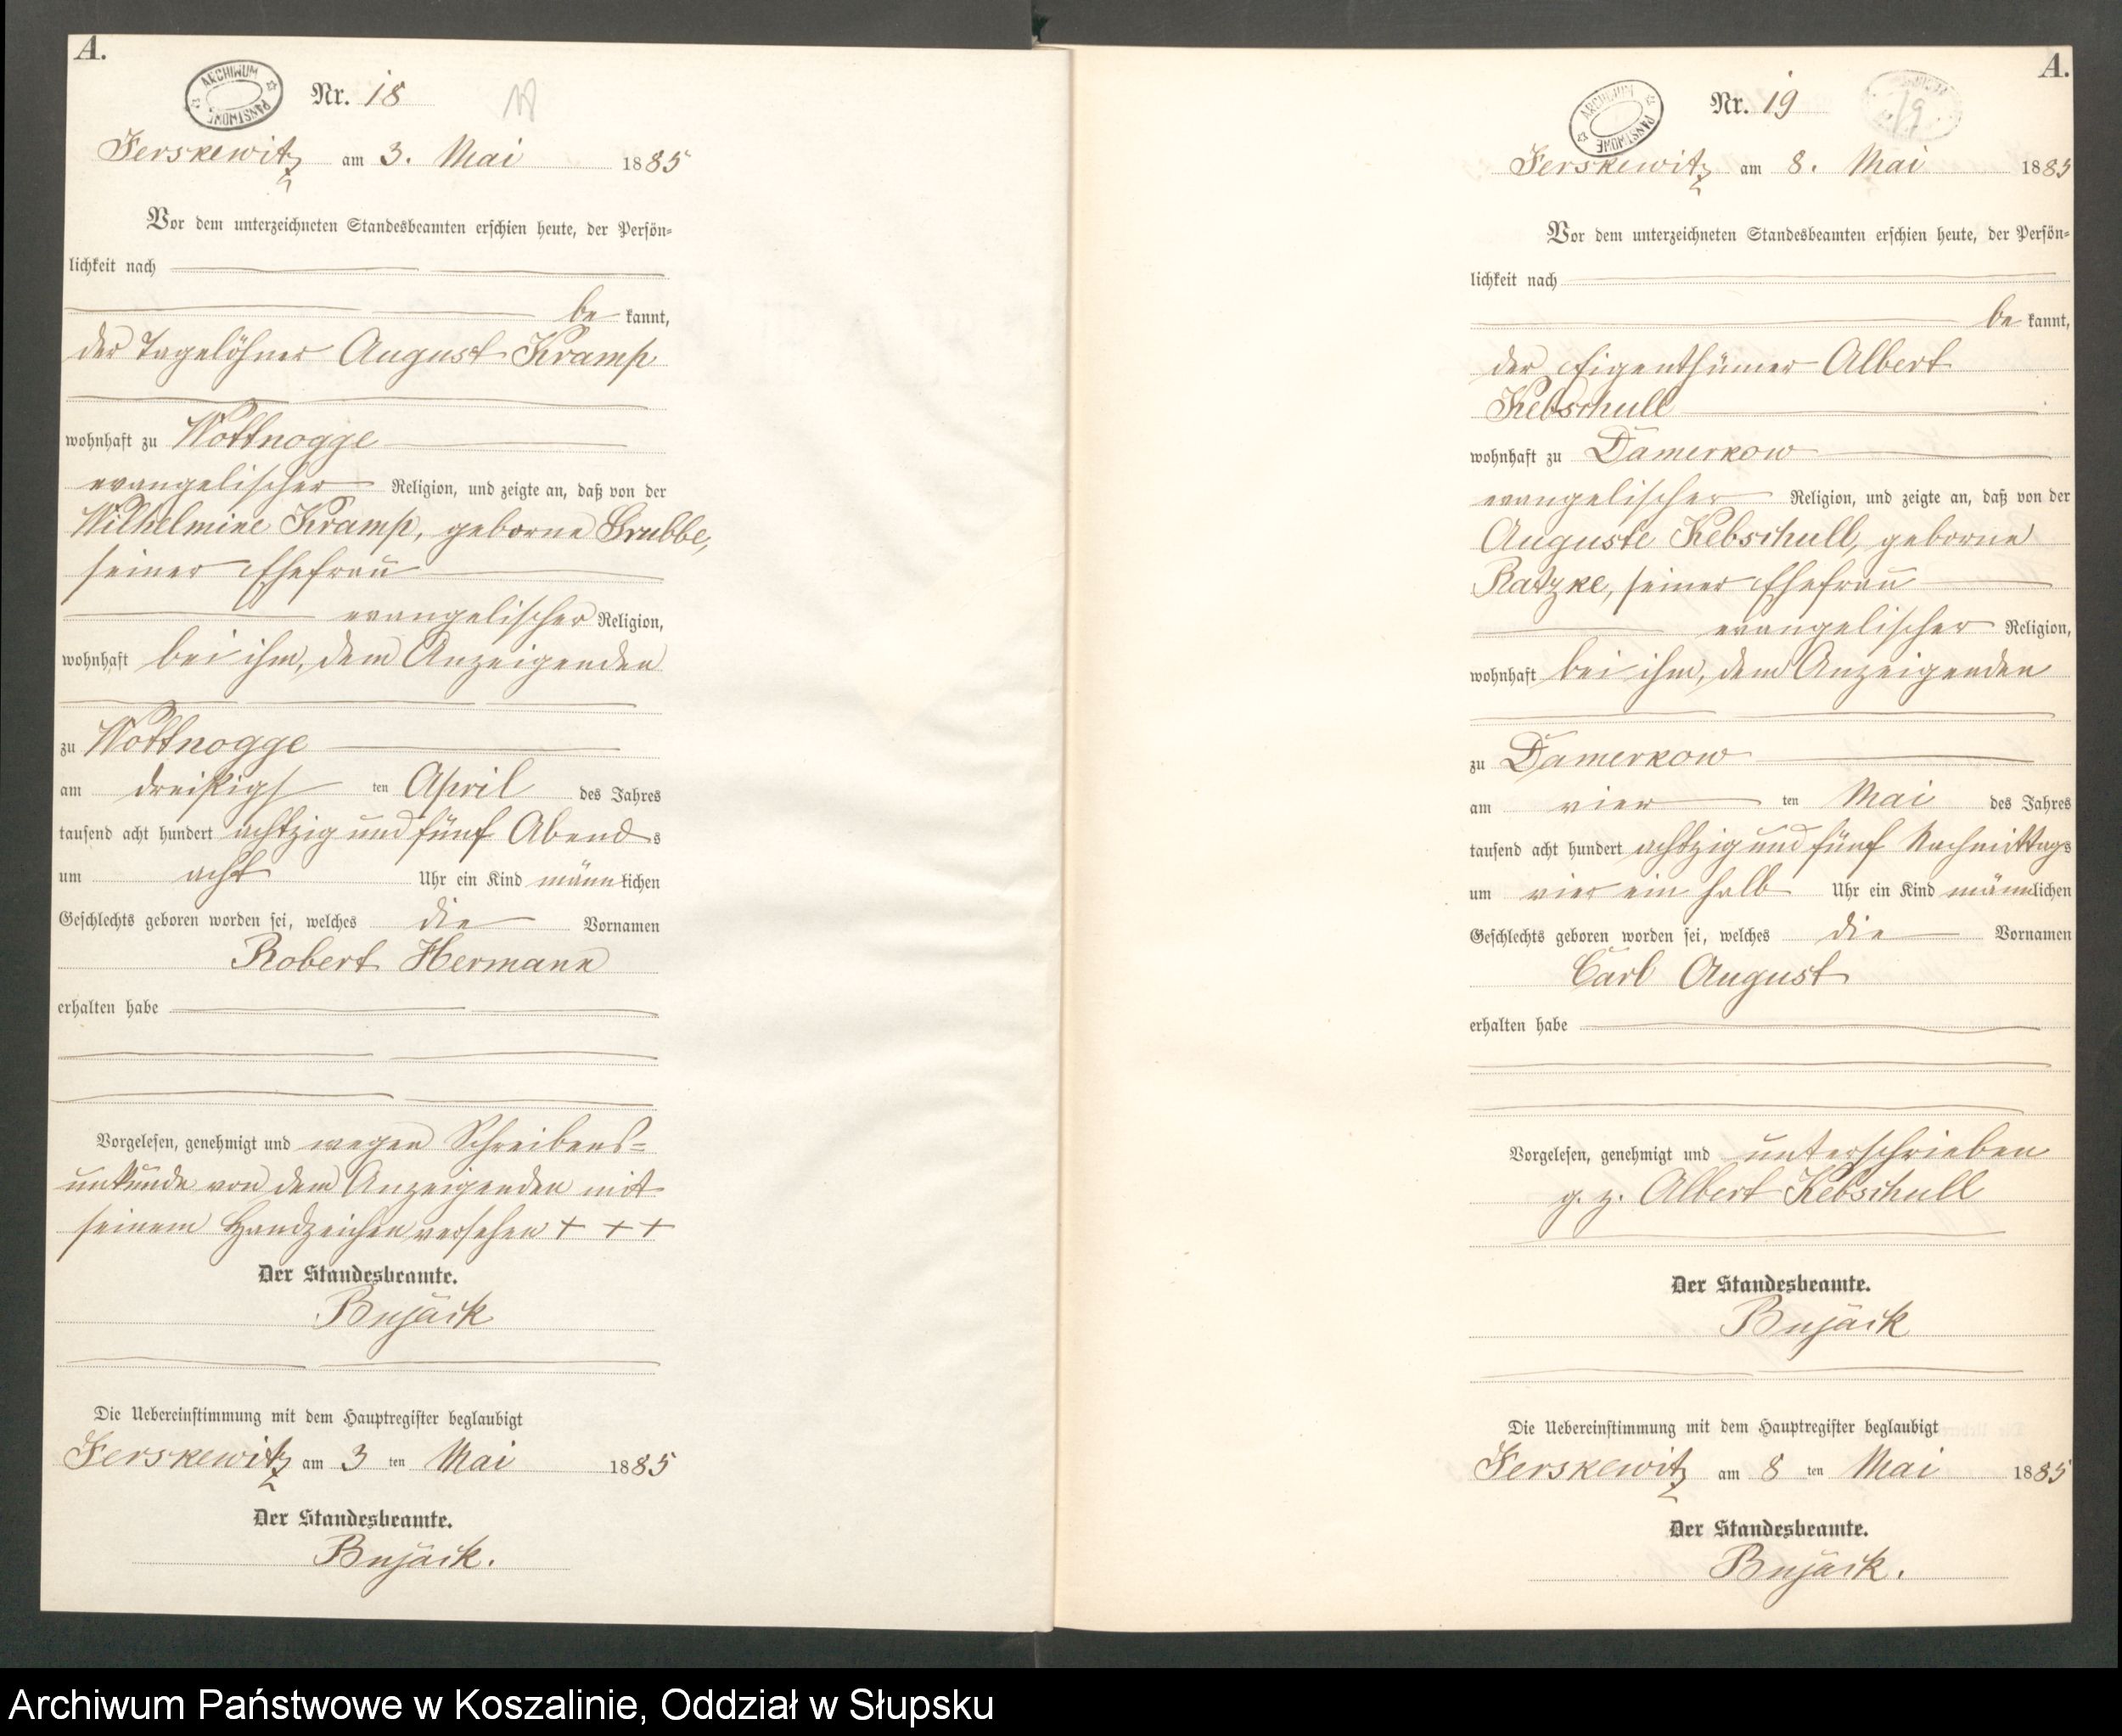 A.
ARCHIWUM PAŃSTWOWE
Nr. 18
18
Jerskewitz am 3. Mai 1885
Vor dem unterzeichneten Standesbeamten erschien heute, der Persön-
lichkeit nach
be kannt,
der Tagelöhner August Kramp
wohnhaft zu Wottnogge
evangelischer Religion, und zeigte an, daß von der
Wilhelmine Kramp, geborne Grubbe,
seiner Ehefrau
evangelischer Religion,
wohnhaft bei ihm, dem Anzeigenden
zu Wottnogge
am dreißigs ten April des Jahres
tausend acht hundert achtzig und fünf Abends
um acht Uhr ein Kind männlichen
Geschlechts geboren worden sei, welches die Vornamen
Robert Hermann
erhalten habe
Vorgelesen, genehmigt und wegen Schreibens-
unkunde von dem Anzeigenden mit
seinem Handzeichen versehen + + +
Der Standesbeamte.
Bujäck
Die Uebereinstimmung mit dem Hauptregister beglaubigt
Jerskewitz am 3 ten Mai 1885
Der Standesbeamte.
Bujäck.
A.
ARCHIWUM PAŃSTWOWE
Nr. 19
19
Jerskewitz am 8. Mai 1885
Vor dem unterzeichneten Standesbeamten erschien heute, der Persön-
lichkeit nach
be kannt,
der Eigenthümer Albert
Kebschull
wohnhaft zu Damerkow
evangelischer Religion, und zeigte an, daß von der
Auguste Kebschull, geborne
Ratzke, seiner Ehefrau
evangelischer Religion,
wohnhaft bei ihm, dem Anzeigenden
zu Damerkow
am vier ten Mai des Jahres
tausend acht hundert achtzig und fünf Nachmittags
um vier ein halb Uhr ein Kind männlichen
Geschlechts geboren worden sei, welches die Vornamen
Carl August
erhalten habe
Vorgelesen, genehmigt und unterschrieben
g. z. Albert Kebschull
Der Standesbeamte.
Bujäck
Die Uebereinstimmung mit dem Hauptregister beglaubigt
Jerskewitz am 8 ten Mai 1885
Der Standesbeamte.
Bujäck.
Archiwum Państwowe w Koszalinie, Oddział w Słupsku